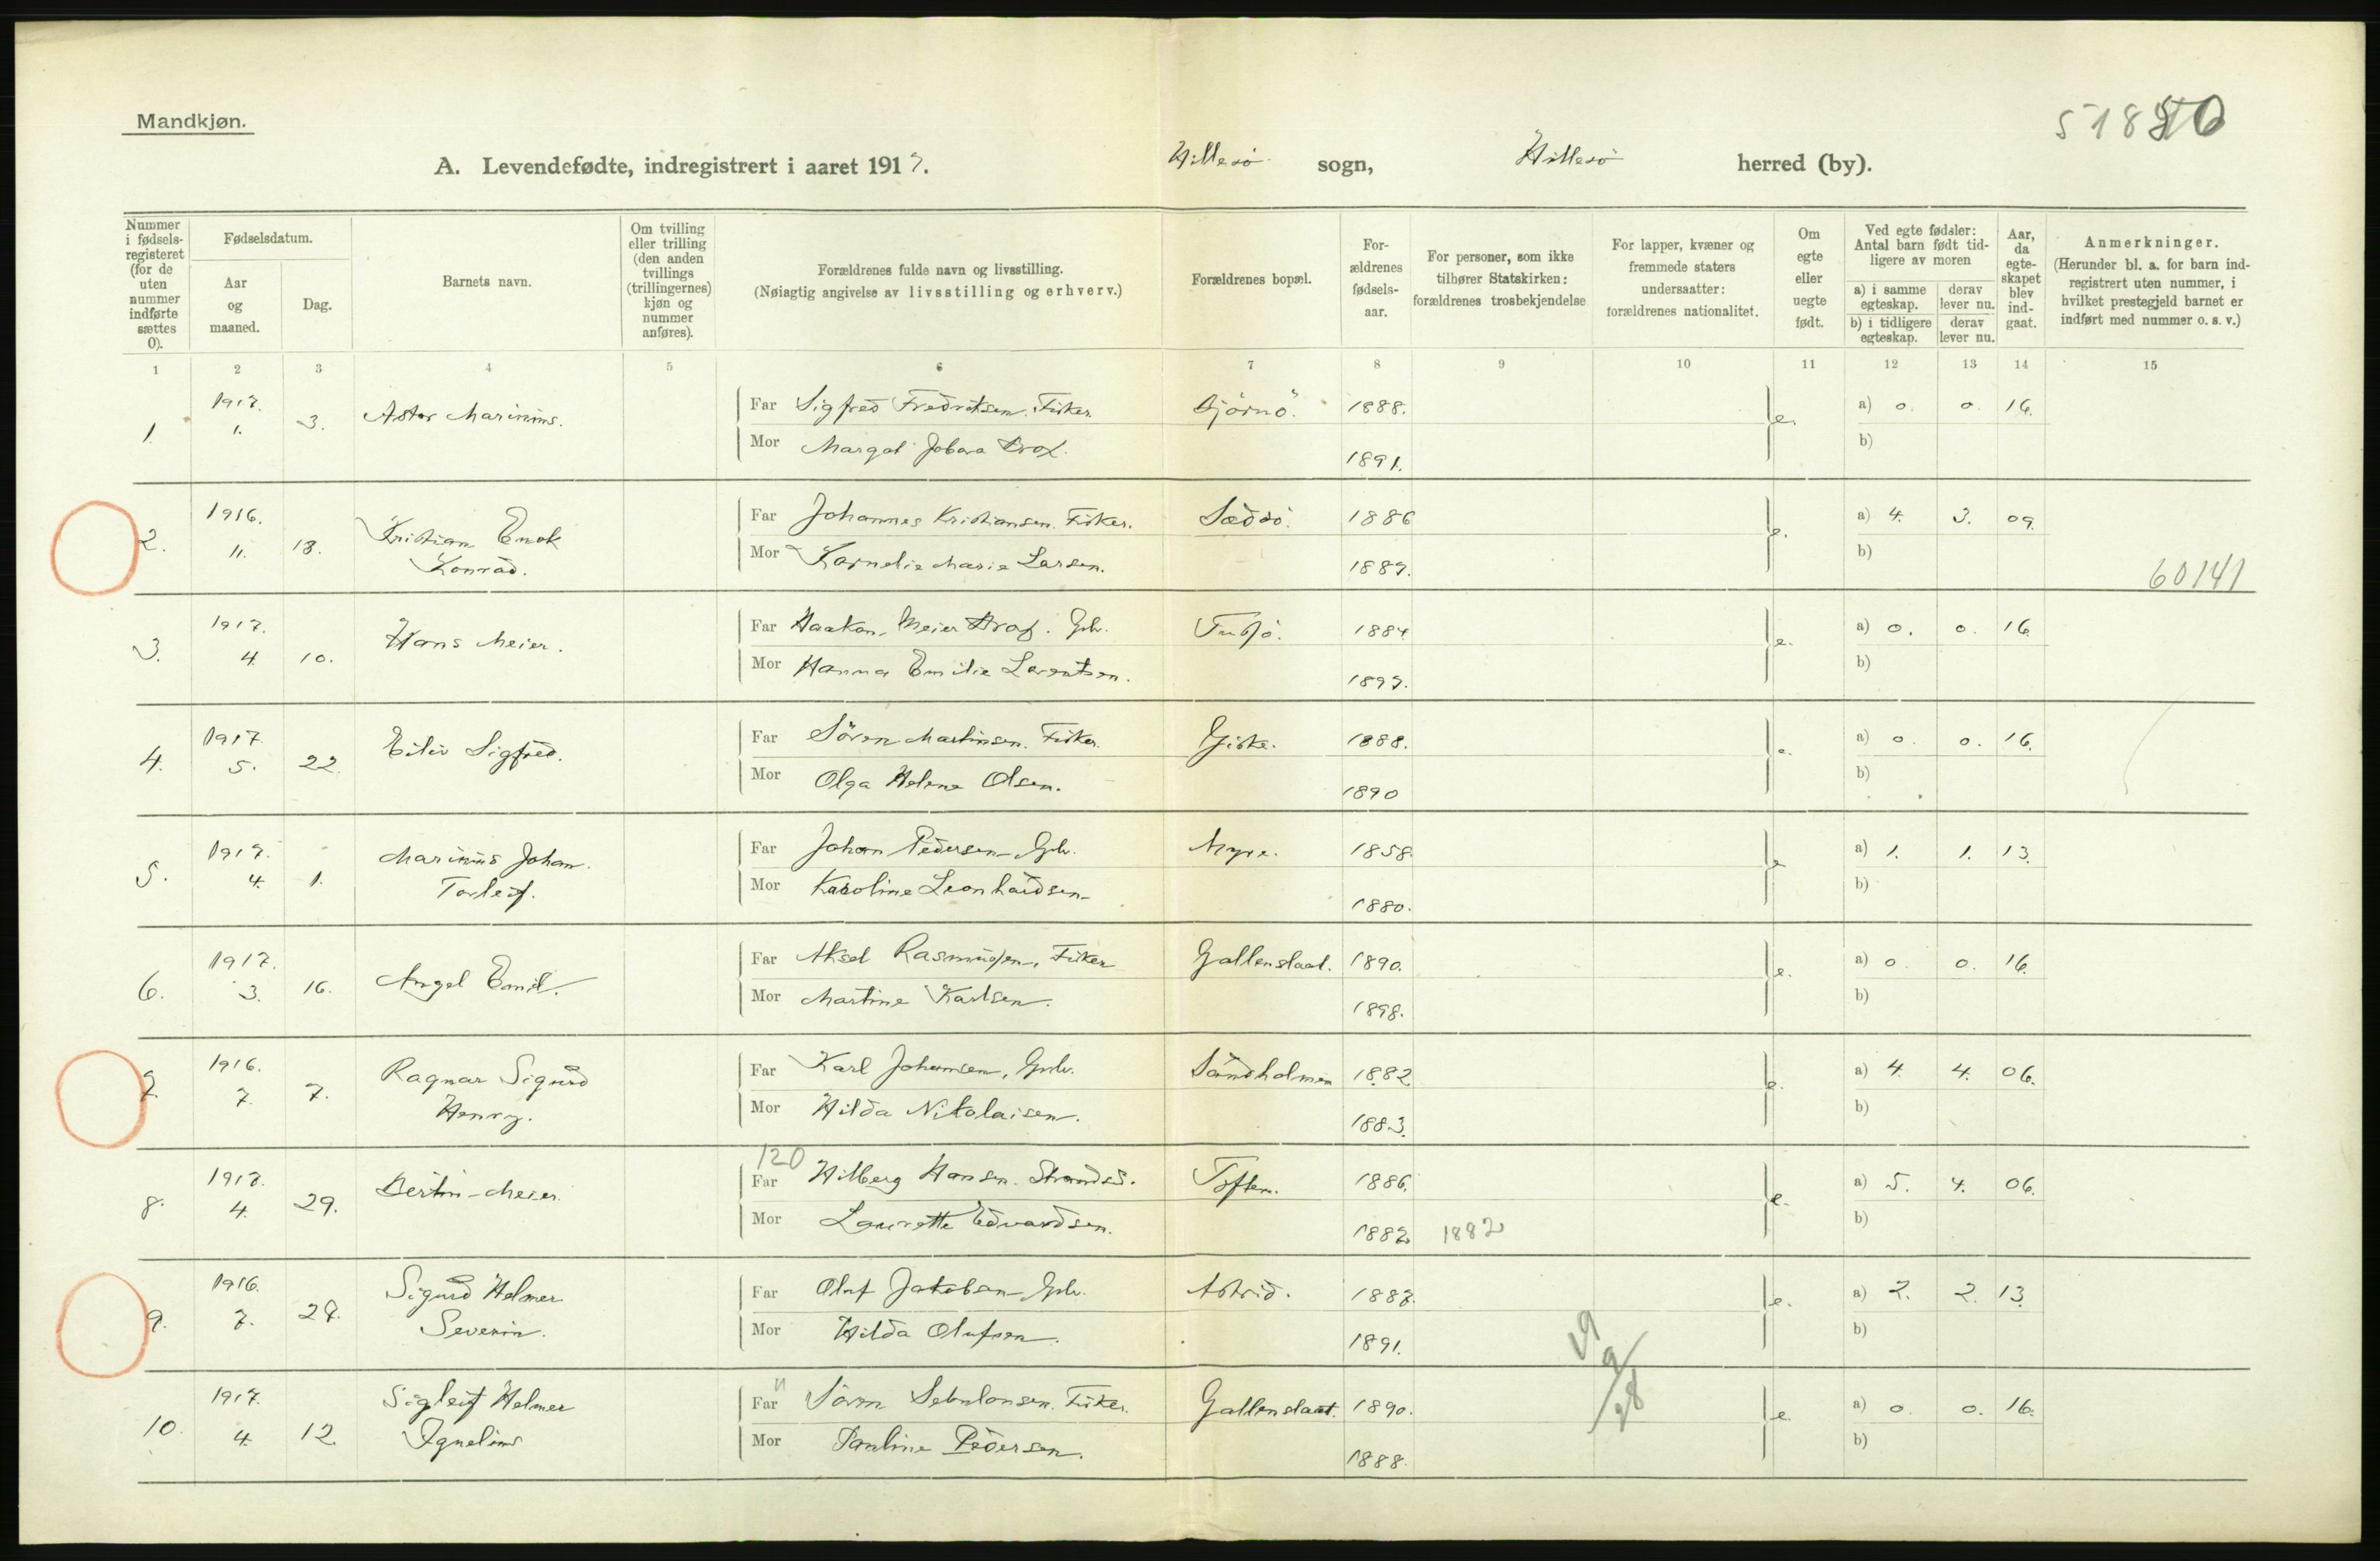 Mandkjøn.
A. Levendefødte, indregistrert i aaret 1917. Hillesö sogn, Hillesö herred (by).
Nummer i fødsels-registeret (for de uten nummer indførte sættes 0).
Fødselsdatum.
Aar og maaned.
Dag.
Barnets navn.
Om tvilling eller trilling (den anden tvillings (trillingernes) kjøn og nummer anføres).
Forældrenes fulde navn og livsstilling.
(Nøiagtig angivelse av livsstilling og erhverv.)
Forældrenes bopæl.
For-ældrenes fødsels-aar.
For personer, som ikke tilhører Statskirken: forældrenes trosbekjendelse
For lapper, kvæner og fremmede staters undersaatter: forældrenes nationalitet.
Om egte eller uegte født.
Ved egte fødsler: Antal barn født tid-ligere av moren
a) i samme egteskap. derav lever nu.
b) i tidligere egteskap. derav lever nu.
Aar, da egte-skapet blev ind-gaat.
Anmerkninger.
(Herunder bl. a. for barn ind-registrert uten nummer, i hvilket prestegjeld barnet er indført med nummer o. s. v.)
1 2 3 4 5 6 7 8 9 10 11 12 13 14 15
1. 1917. 1. 3. Marinius. Far Sigfred Fredriksen. Fisker. Björnö. 1888. e. a) 0. 0. 16.
Mor Margot 1891. b)
2. 1916. 11. 13. Kristian Enok Far Johannes Kristiansen. Fisker. 1886 e. a) 4. 3. 09.
Konrad. Mor Kornelie Marie Larsen. 1889. b) 60141
3. 1917. 4. 10. Hans Meier. Far Haakon Meier Gbr. 1884. e. a) 0. 0. 16.
Mor Hanna Emilie Lorentsen. 1897. b)
4. 1917 5. 22. Eiliv Sigfred. Far Sören Martinsen. Fisker. Giske. 1888. e. a) 0. 0. 16.
Mor Olga Helene Olsen. 1890 b)
5. 1917. 4. 1. Marinius Johan Far Johan Pedersen Gbr. Myre. 1858. e a) 1. 1. 13.
Torleif. Mor Karoline Leonhardsen 1880. b)
6. 1917. 3. 16. Angel Emil. Far Aksel Rasmussen, Fisker Gallenslaat. 1890. e. a) 0. 0. 16.
Mor Martine Karlsen. 1898. b)
7. 1916. 7. 7. Ragnar Sigurd Far Karl Johansen, Gbr. Sandholmen 1882 e. a) 4. 4. 06.
Henry. Mor Hilda Nikolaisen. 1883. b)
120
8. 1917. 4. 29. Bertin Meier. Far Hilberg Hansen. Toften. 1886. e. a) 5. 4. 06.
Mor Laurette Edvardsen. 1882 1882 b)
9. 1916. 7. 27. Sigurd Helmer Far Oluf Jakobsen Gbr. 1887. e. a) 2. 2. 13.
Severin. Mor Hilda Olufsen. 1891. b)
10. 1917. 4. 12. Sigleif Helmer Far Sören Sebulonsen. Fisker. Gallenslaat. 1890. e. a) 0. 0. 16.
Mor Pauline Pedersen. 1888. b)